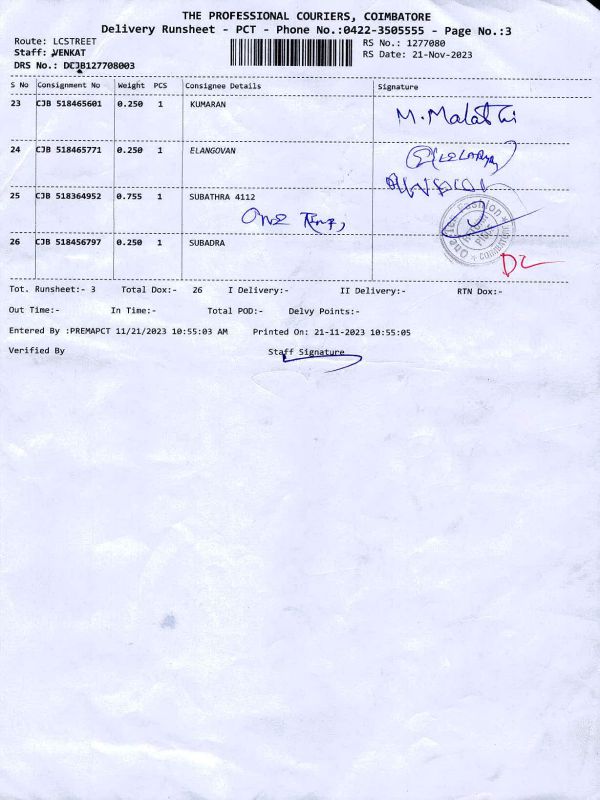 THE PROFESSIONAL COURIERS, COIMBATORE
Delivery Runsheet - PCT - Phone No.:0422-3505555 - Page No.:3
Route: LCSTREET
RS No.: 1277080
Staff: VENKAT
RS Date: 21-Nov-2023
DRS No.: DCJB127708003
S No Consignment No Weight PCS Consignee Details Signature
23 CJB 518465601 0.250 1 KUMARAN M. Malathi
24 CJB 518465771 0.250 1 ELANGOVAN
25 CJB 518364952 0.755 1 SUBATHRA 4112
26 CJB 518456797 0.250 1 SUBADRA
Tot. Runsheet:- 3 Total Dox:- 26 I Delivery:- II Delivery:- RTN Dox:-
Out Time:- In Time:- Total POD:- Delvy Points:-
Entered By :PREMAPCT 11/21/2023 10:55:03 AM Printed On: 21-11-2023 10:55:05
Verified By Staff Signature